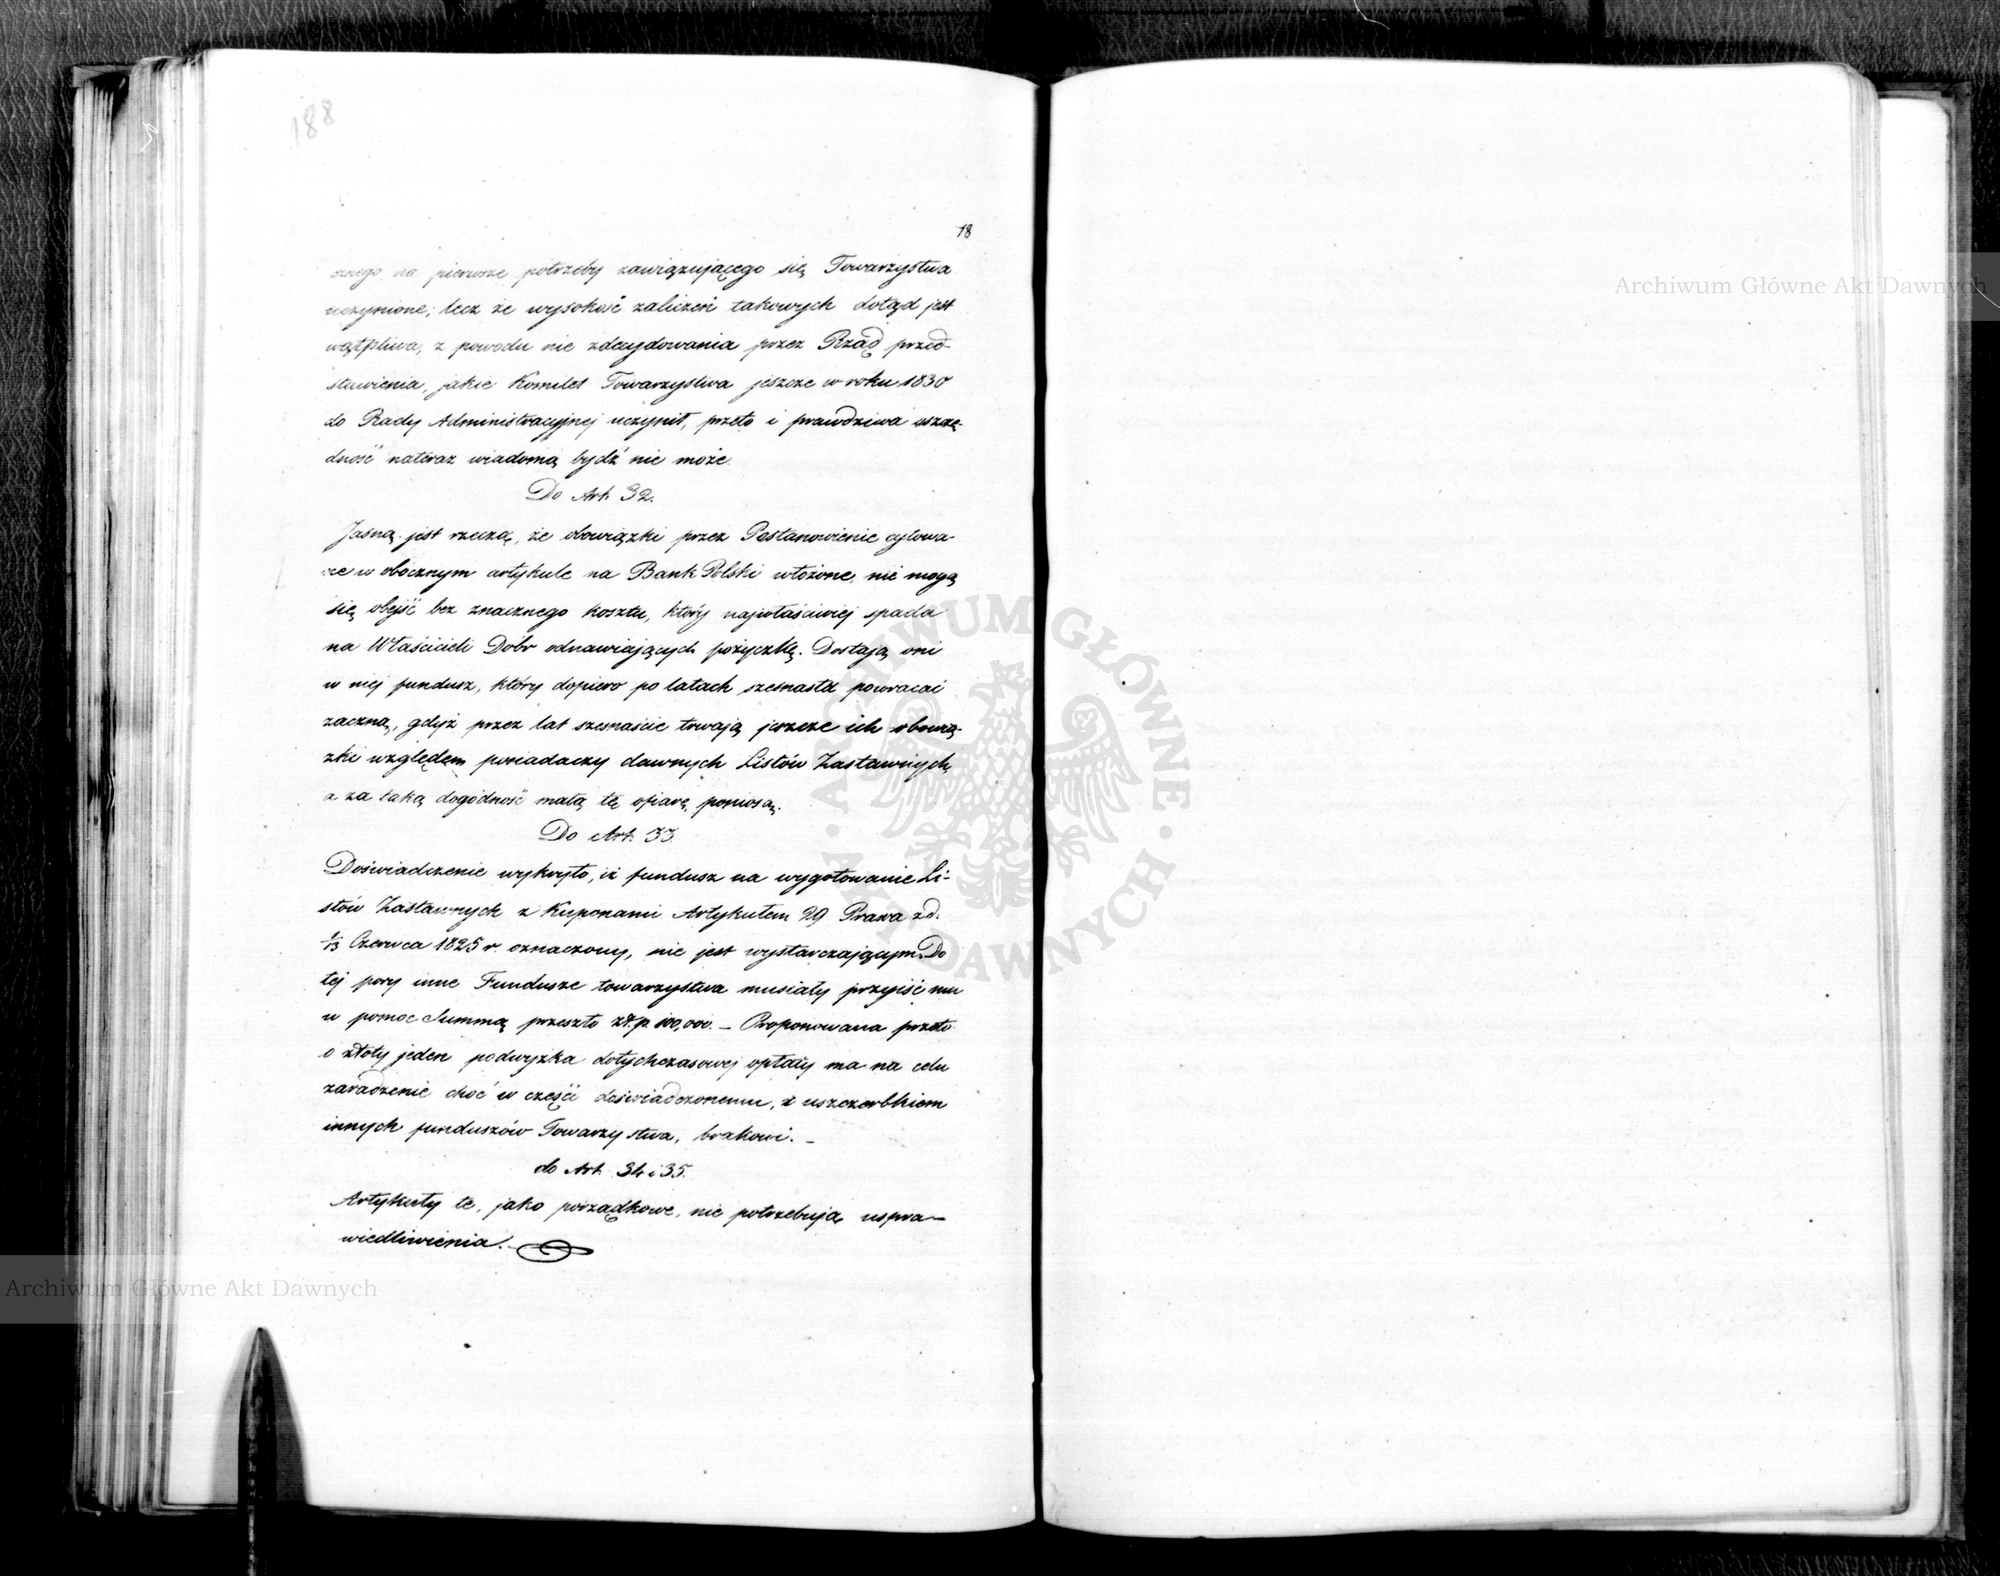 188
18
na pierwsze potrzeby zawiązującego się Towarzystwa
uczynione; lecz że wysokość zaliczeń takowych dotąd jest
wątpliwa, z powodu nie zdecydowania przez Rząd przed-
stawienia, jakie Komitet Towarzystwa jeszcze w roku 1830
do Rady Administracyjnej uczynił, przeto i prawdziwa oszczę-
dność nateraz wiadomą bydź nie może.
Do Art. 32.
Jasną jest rzeczą, że obowiązki przez Postanowienie cytowa-
ne w obocznym artykule na Bank Polski włożone, nie mogą
się obejść bez znacznego kosztu, który najwłaściwiej spada
na Właścicieli Dóbr odnawiających pożyczkę. Dostają oni
w niej fundusz, który dopiero po latach szesnastu powracać
zaczną, gdyż przez lat szesnaście trwają jeszcze ich obowią-
zki względem posiadaczy dawnych Listów Zastawnych,
a za taką dogodność małą tę ofiarę poniosą.
Do Art. 33.
Doświadczenie wykryło, iż fundusz na wygotowanie Li-
stów Zastawnych z Kuponami Artykułem 29 Prawa z d.
1/13 Czerwca 1825 r. oznaczony, nie jest wystarczającym. Do
tej pory inne Fundusze towarzystwa musiały przyjść mu
w pomoc Summą przeszło zł.p. 100,000. – Proponowana przeto
o złoty jeden podwyżka dotychczasowej opłaty ma na celu
zaradzenie choć w części doświadczonemu, z uszczerbkiem
innych funduszów Towarzystwa, brakowi. –
do Art. 34 i 35.
Artykuły te, jako porządkowe, nie potrzebują uspra-
wiedliwienia.
Archiwum Główne Akt Dawnych
Archiwum Główne Akt Dawnych
ARCHIWUM GŁÓWNE AKT DAWNYCH